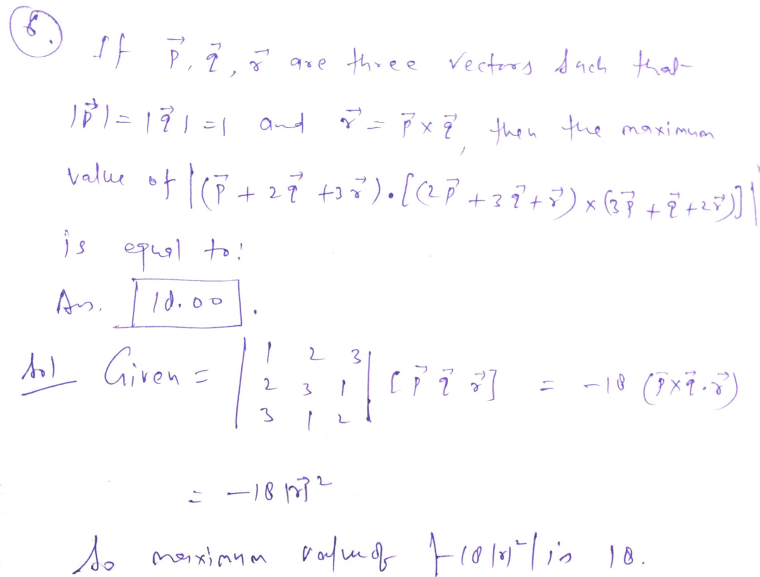 6. If p⃗, q⃗, r⃗ are three vectors such that
|p⃗| = |q⃗| = 1 and r⃗ = p⃗ × q⃗, then the maximum
value of |(p⃗ + 2q⃗ + 3r⃗)·[(2p⃗ + 3q⃗ + r⃗) × (3p⃗ + q⃗ + 2r⃗)]|
is equal to:
Ans. 18.00.
Sol Given = | 1 2 3 | 2 3 1 | 3 1 2 | [p⃗ q⃗ r⃗] = -18 (p⃗×q⃗·r⃗)
= -18 |r⃗|²
So maximum value of |-18|r|²| is 18.